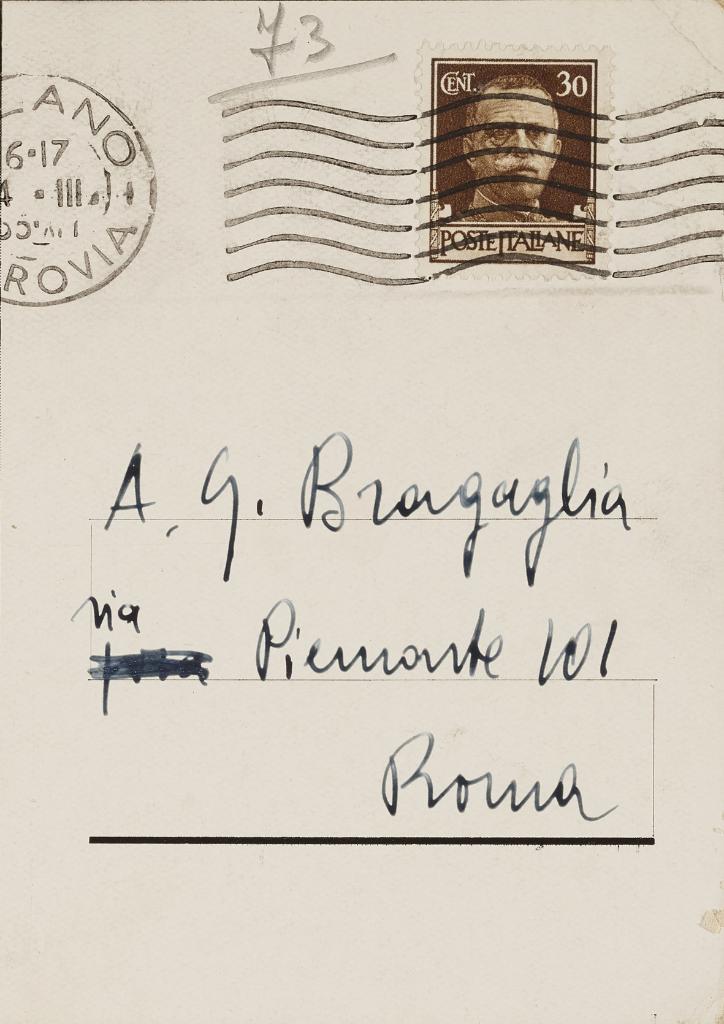 73
ANO
6·17
III
ROVIA
CENT. 30
POSTE ITALIANE
A. G. Bragaglia
via
Piemonte 101
Roma